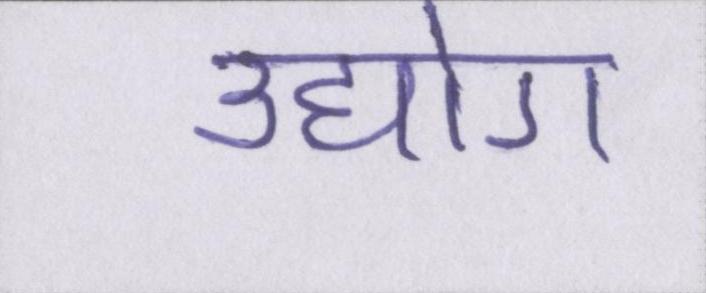 उद्योग